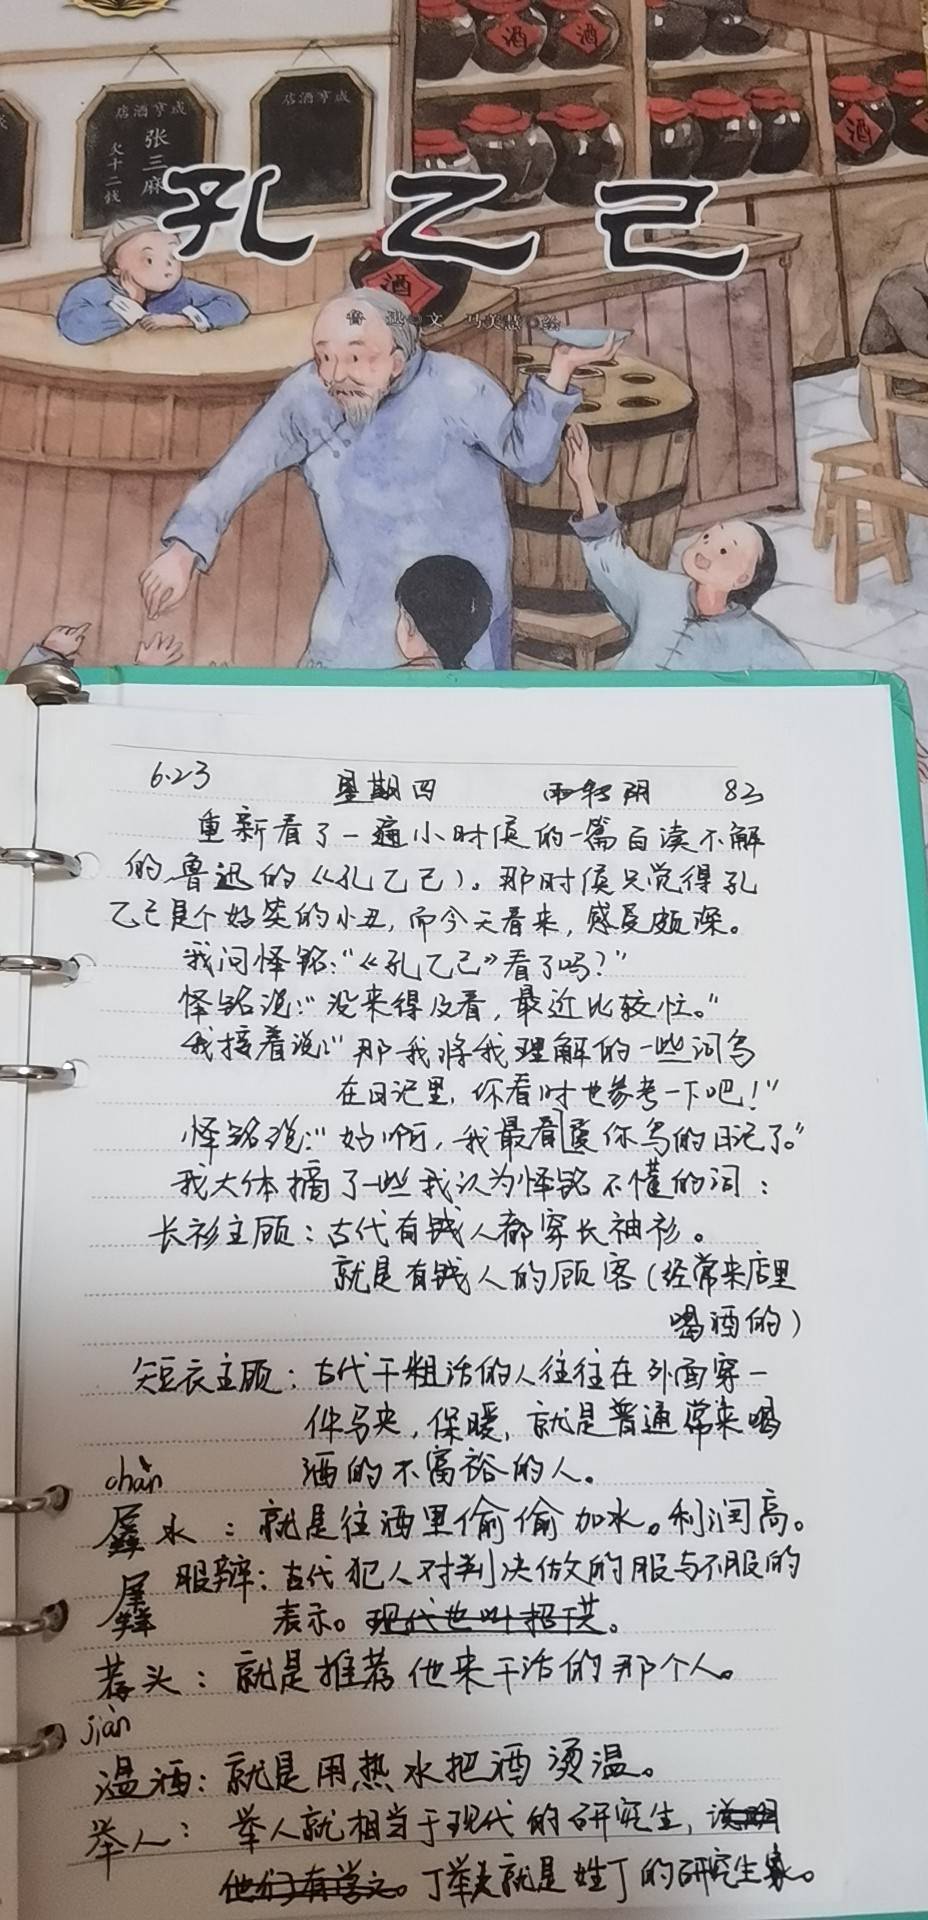 酒
酒
酒
咸亨酒店
咸亨酒店
张三麻
欠十二钱
孔乙己
酒
鲁迅◎文 马美慧◎绘
6.23 星期四 雨转阴 83
重新看了一遍小时侯的一篇百读不解
的鲁迅的《孔乙己》。那时侯只觉得孔
乙己是个好笑的小丑,而今天看来,感受颇深。
我问怪铭:“《孔乙己》看了吗?”
怪铭说:“没来得及看,最近比较忙。”
我接着说:“那我将我理解的一些词写
在日记里,你看时也参考一下吧!”
怪铭说:“好啊,我最看重你写的日记了。”
我大体摘了一些我认为怪铭不懂的词:
长衫主顾:古代有钱人都穿长袖衫。
就是有钱人的顾客(经常来店里
喝酒的)
短衣主顾:古代干粗活的人往往在外面穿一
件马夹,保暖,就是普通常来喝
酒的不富裕的人。
chàn
羼水:就是往酒里偷偷加水。利润高。
羼
服辩:古代犯人对判决做的服与不服的
表示。现代也叫招供。
荐头:就是推荐他来干活的那个人。
jiàn
温酒:就是用热水把酒烫温。
举人:举人就相当于现代的研究生,说明
他们有学文。丁举人就是姓丁的研究生家。